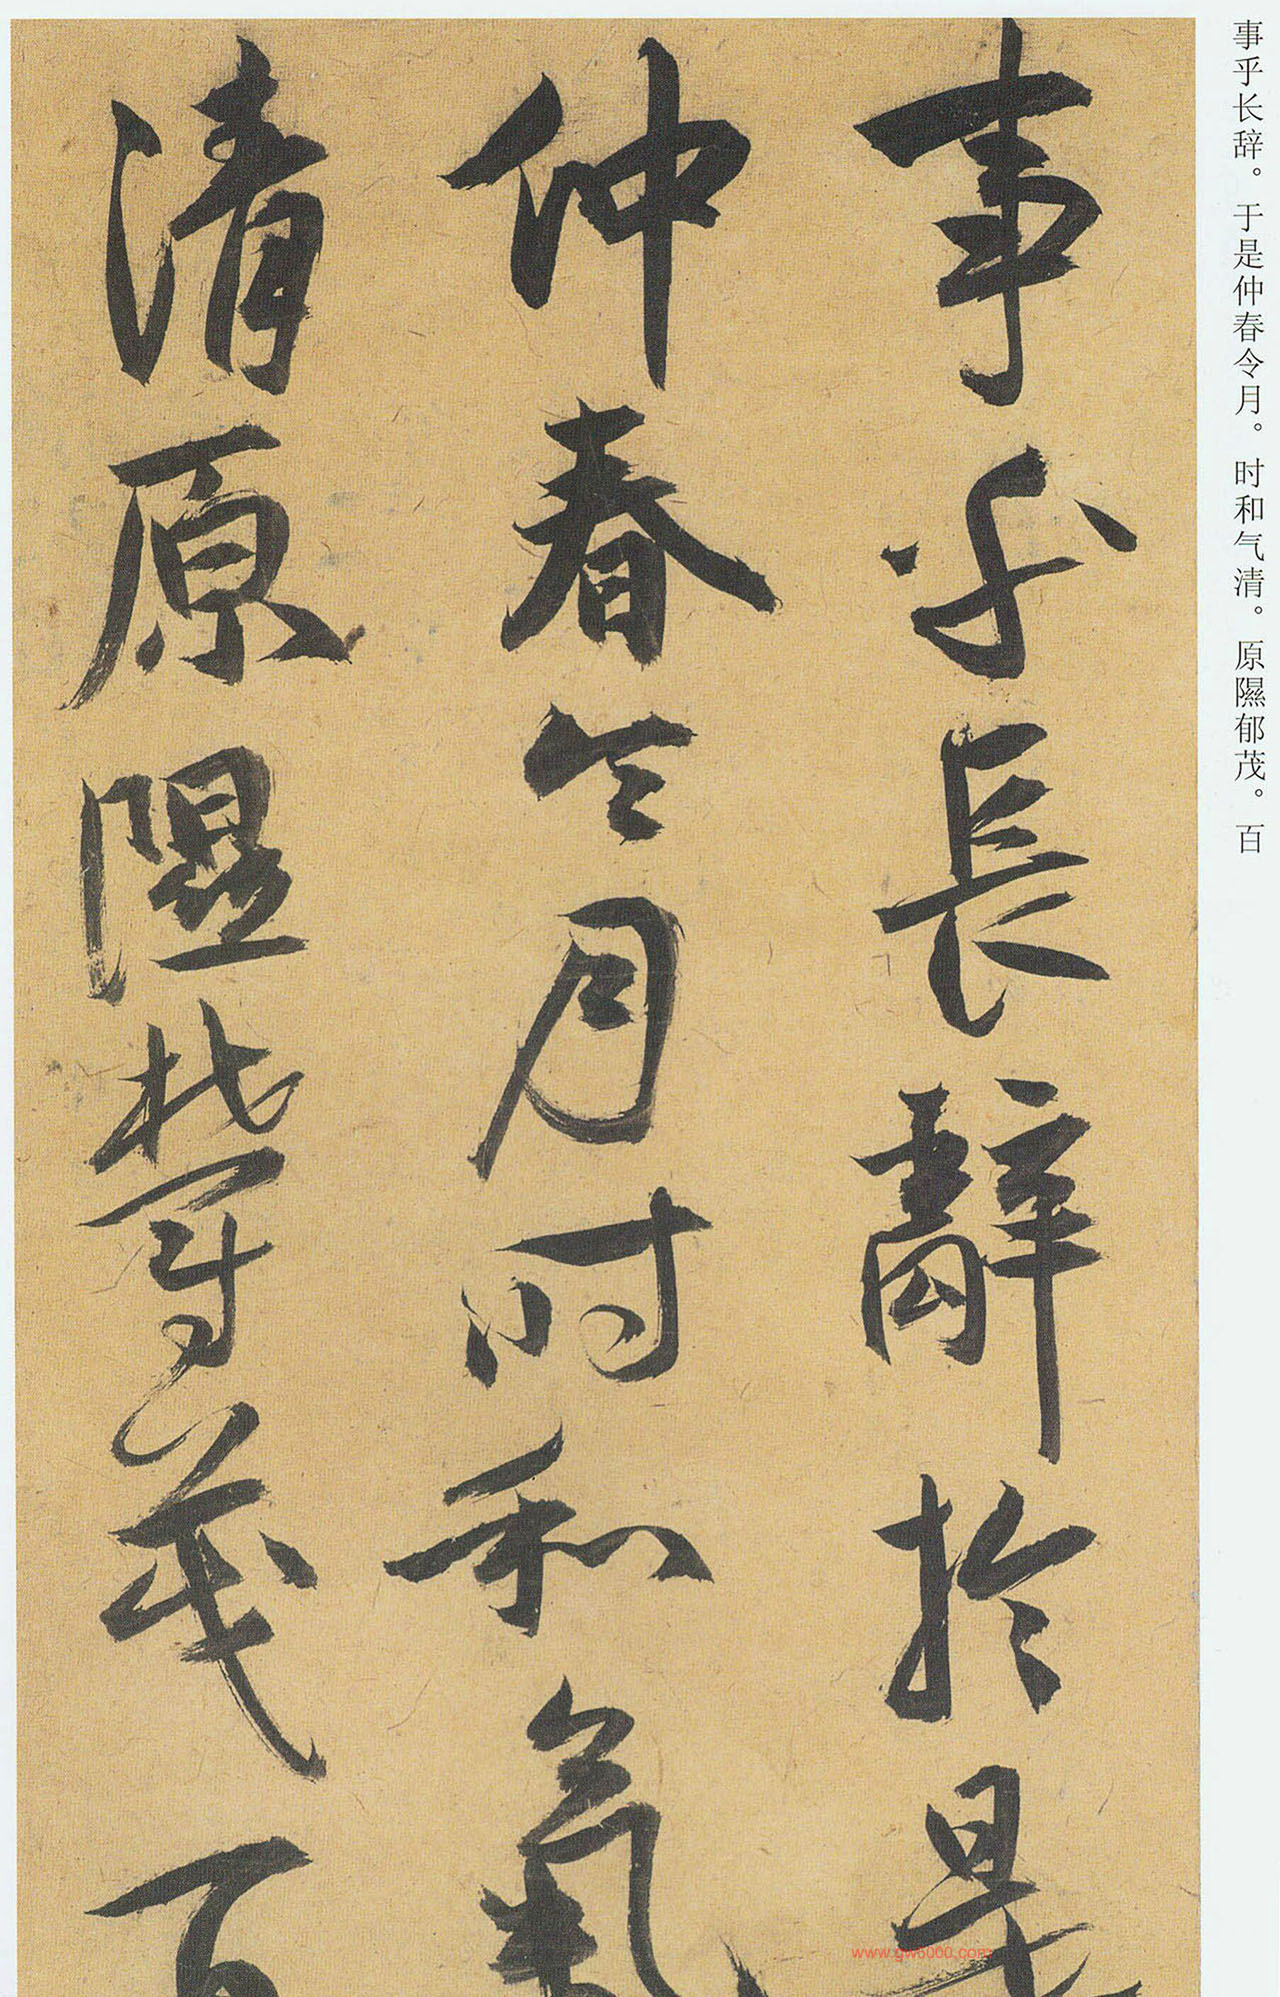 事乎长辞。于是仲春令月。时和气清。原隰郁茂。百
事乎長辭於是
仲春令月时和氣
清原隰欝茂百
www.gw6000.com